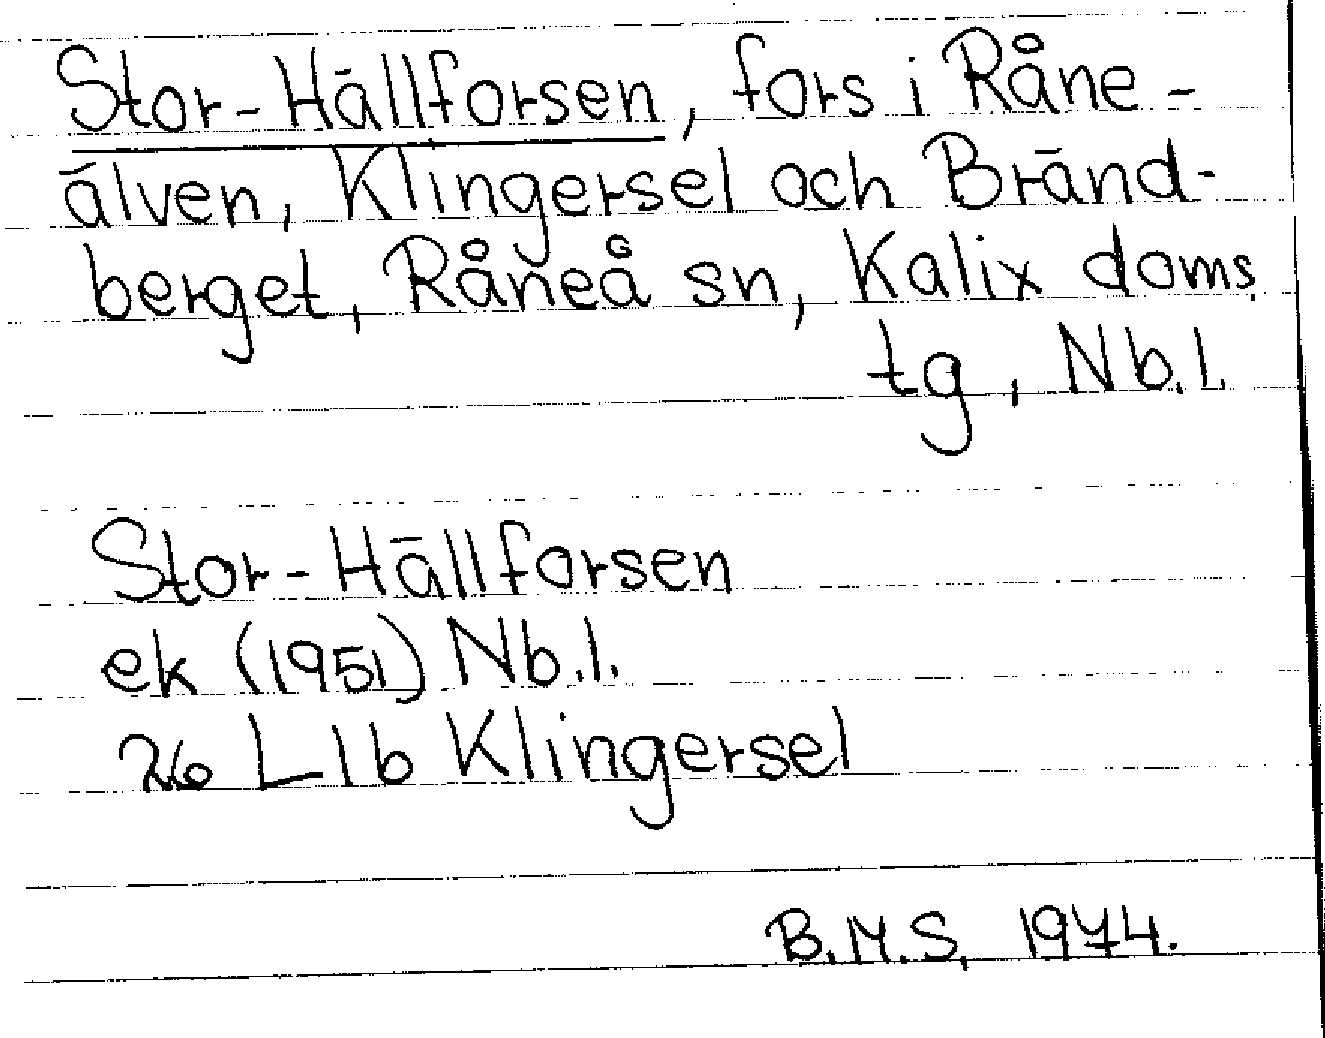 Stor-Hällforsen, fors i Råne-
älven, Klingersel och Bränd-
berget, Råneå sn, Kalix doms.
tg, Nb.l.
Stor-Hällforsen
ek (1951) Nb.l.
26 L 1b Klingersel
B.M.S, 1974.